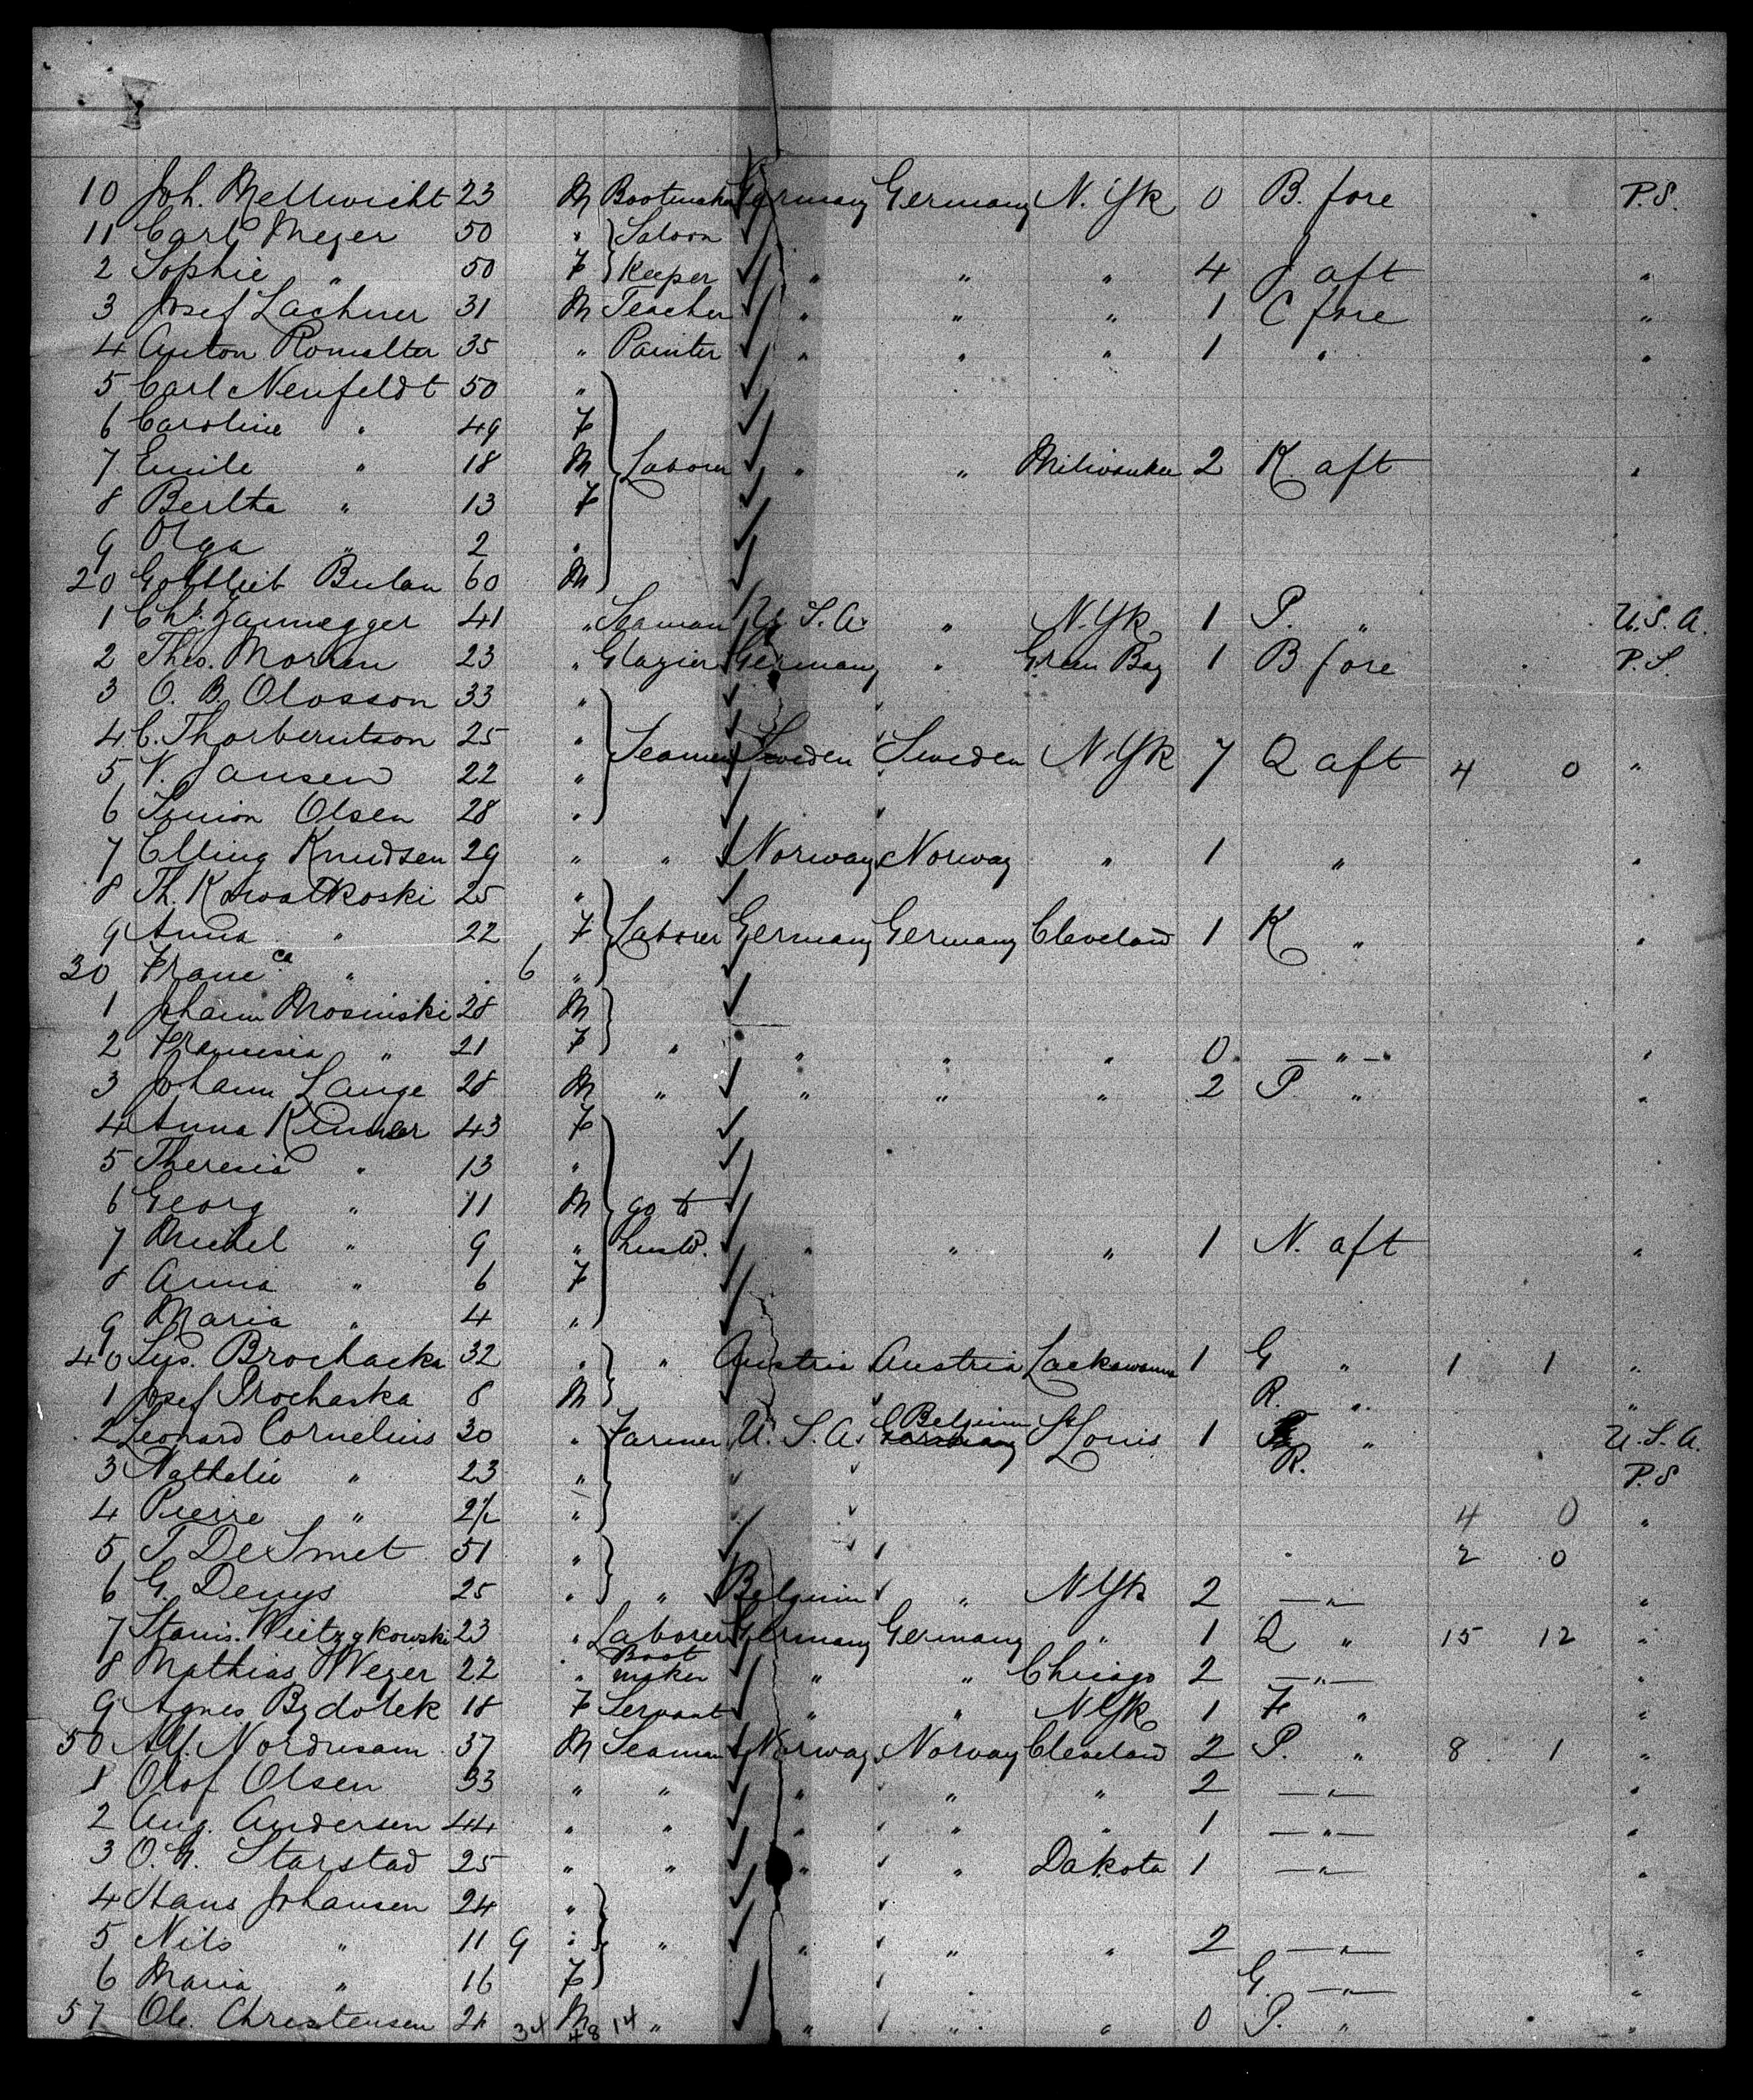 10 Joh. Mellwicht 23 M Bootmaker Germany Germany N. Yk 0 B. fore P.S.
11 Carl Meyer 50 " Saloon
2 Sophie " 50 F Keeper " " " 4 J aft "
3 Josef Lachner 31 M Teacher " " " 1 C fore "
4 Anton Romalter 35 " Painter " " " 1 " "
5 Carl Neufeldt 50 "
6 Caroline " 49 F
7 Emile " 18 M Laborer " " Milwaukee 2 K aft "
8 Bertha " 13 F
9 Olga " 2 "
20 Gottlieb Bulan 60 M
1 Chr. Zannegger 41 " Seaman U. S. A. " N. Yk 1 P. " U. S. A.
2 Theo. Morren 23 " Glazier Germany " Green Bay 1 B fore P. S.
3 O. B. Olosson 33 "
4 C. Thorberntson 25 " Seamen Sweden Sweden N Yk 7 Q aft 4 0 "
5 N. Jansen 22 "
6 Simon Olsen 28 "
7 Elling Knudsen 29 " " Norway Norway " 1 " "
8 Th. Kowalkoski 25 "
9 Anna " 22 F Laborer Germany Germany Cleveland 1 K " "
30 Franc ca " . 6 "
1 Johann Mosinski 28 M
2 Francisia " 21 F " " " " 0 — " — "
3 Johann Lange 28 M " " " " 2 P. " "
4 Anna 43 F
5 Theresia " 13 "
6 Georg " 11 M go to
7 Michel " 9 " husbd. " " " 1 N. aft "
8 Anna " 6 F
9 Maria " 4 "
40 Brochacka 32 " " Austria Austria Lackawanna 1 G " 1 1 "
1 Josef Prochaska 8 M R. " "
2 Leonard Cornelius 30 " Farmer U. S. A. Belgium St Louis 1 R. " U. S. A.
3 Nathalie " 23 " P. S
4 Pierre " 2½ " 4 0 "
5 P DeSmet 51 " 2 0
6 G. Denys 25 " " Belgium " N Yk 2 — " — "
7 Stanis. Wietzykowski 23 " Laborer Germany Germany " 1 Q " 15 12 "
8 Mathias Weyer 22 " Boot maker " " Chicago 2 — " — "
9 Agnes Bydolek 18 F Servant " " N Yk 1 F " "
50 Alf. Nordnsam 37 M Seaman Norway Norway Cleveland 2 P. " 8 1 "
1 Olof Olsen 33 " " " " " 2 — " — "
2 Aug. Andersen 44 " " " " " 1 — " — "
3 O. G. Starstad 25 " " " " Dakota 1 — " — "
4 Hans Johansen 24 "
5 Nils " 11 9 " " " " " 2 — " — "
6 Maria " 16 F G. — " — "
57 Ole Christensen 24 34 M 48 14 " " " " 0 P. " "